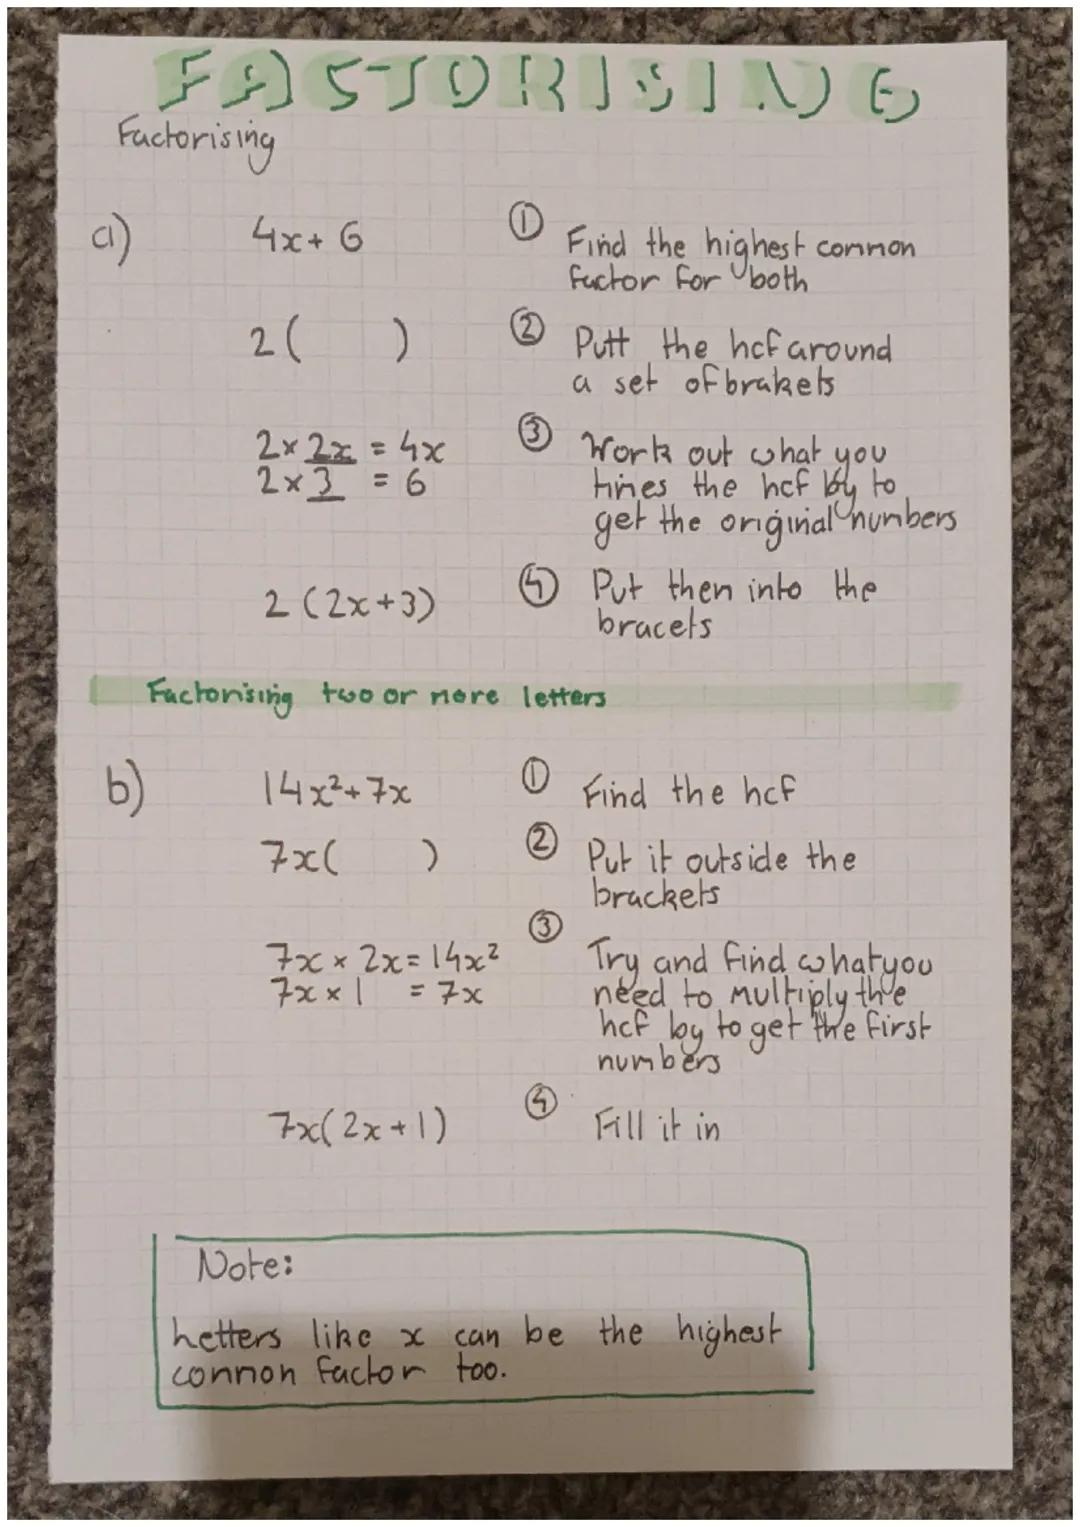 FACTORISING
Factorising
a) 4x + 6 ① Find the highest common
factor for both
2( ) ② Putt the hcf around
a set of brakets
2 × 2x = 4x ③ Work out what you
2 × 3 = 6 times the hcf by to
get the original numbers
2 (2x + 3) ④ Put then into the
bracets
Factorising two or more letters
b) 14x² + 7x ① Find the hcf
7x( ) ② Put it outside the
brackets
③
7x × 2x = 14x² Try and find what you
7x × 1 = 7x need to multiply the
hcf by to get the first
numbers
7x(2x + 1) ④ Fill it in
Note:
Letters like x can be the highest
common factor too.